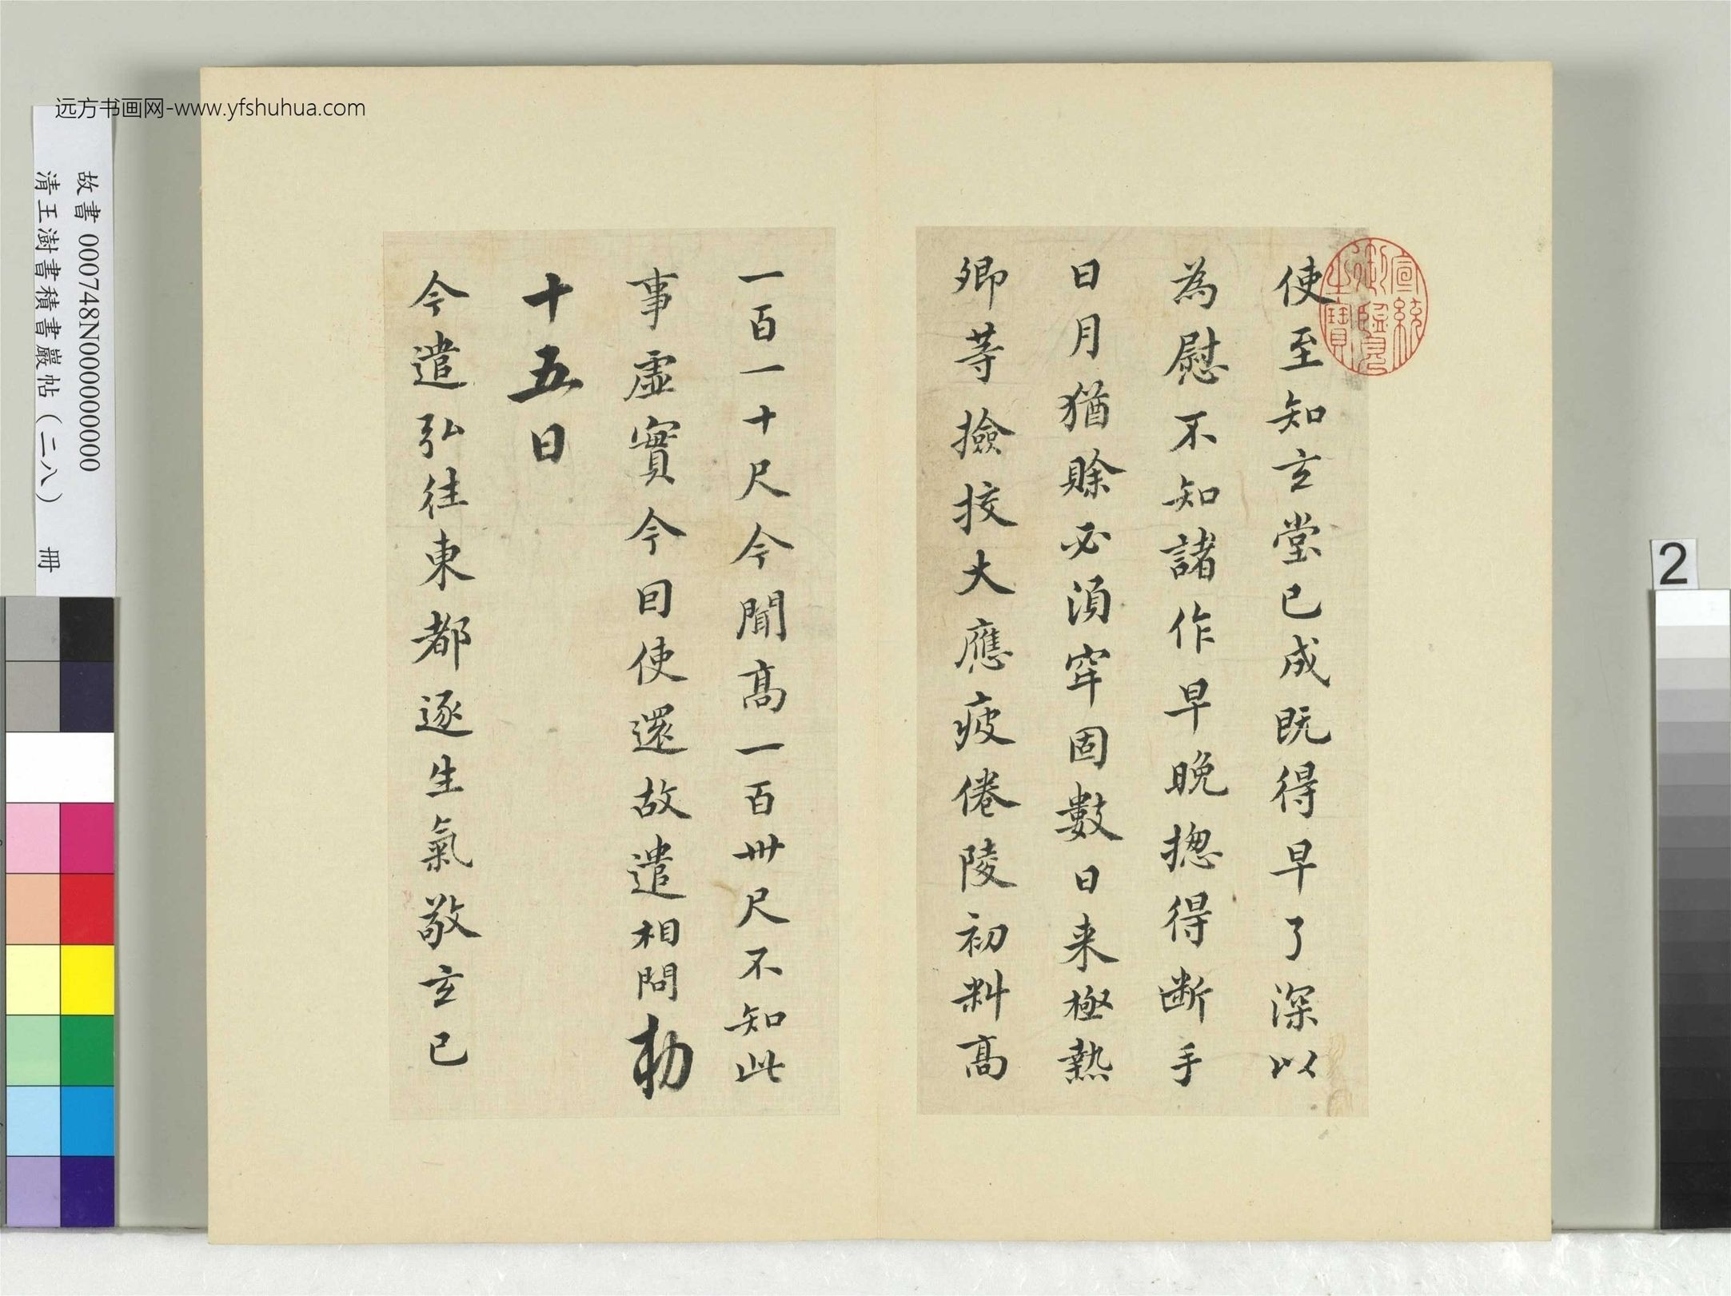 远方书画网-www.yfshuhua.com
故書 000748N000000000
清王澍書積書巖帖(二八) 冊
2
宣統御覽之寶
使至知玄堂已成既得早了深以
為慰不知諸作早晚揔得斷手
日月猶賒必須牢固數日来極熱
卿等撿挍大應疲倦陵初料高
一百一十尺今聞高一百卅尺不知此
事虛實今日使還故遣相問勑
十五日
今遣弘往東都逐生氣敬玄已